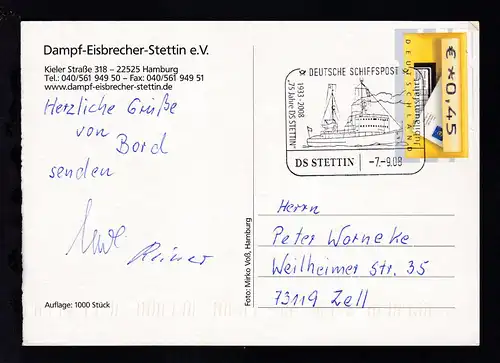 Dampf-Eisbrecher-Stettin e.V.
Kieler Straße 318 – 22525 Hamburg
Tel.: 040/561 949 50 – Fax: 040/561 949 51
www.dampf-eisbrecher-stettin.de
Herzliche Grüße
von
Bord
senden
Reiner
Auflage: 1000 Stück
Foto: Mirko Voß, Hamburg
DEUTSCHE SCHIFFSPOST
1933-2008
"75 Jahre DS STETTIN"
DS STETTIN -7.-9.08
Jubiläumsfahrt
DEUTSCHLAND
€*0,45
Herrn
Peter Warneke
Weilheimer Str. 35
73119 Zell